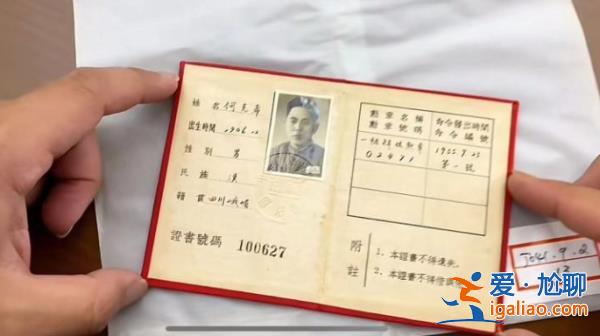 姓名 何克希
出生時間 1906.12
性別 男
民族 漢
籍貫 四川峨嵋
證書號碼 100627
勳章名稱
勳章號碼
命令發出時間
命令編號
一級解放勳章
1955.9.23
第一號
附註
1. 本證書不得遺失。
2. 本證書不得
爱·尬聊
igaliao.com